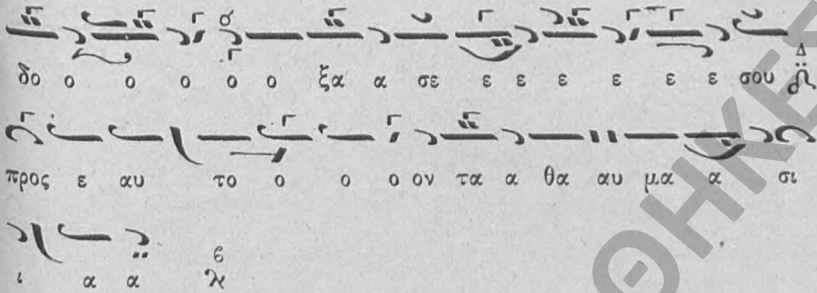 δο ο ο ο ο ο ξα α σε ε ε ε ε ε ε σου
προς ε αυ το ο ο ο ον τα α θα αυ μα α σι
ι α α
ΘΗΚΕΣ